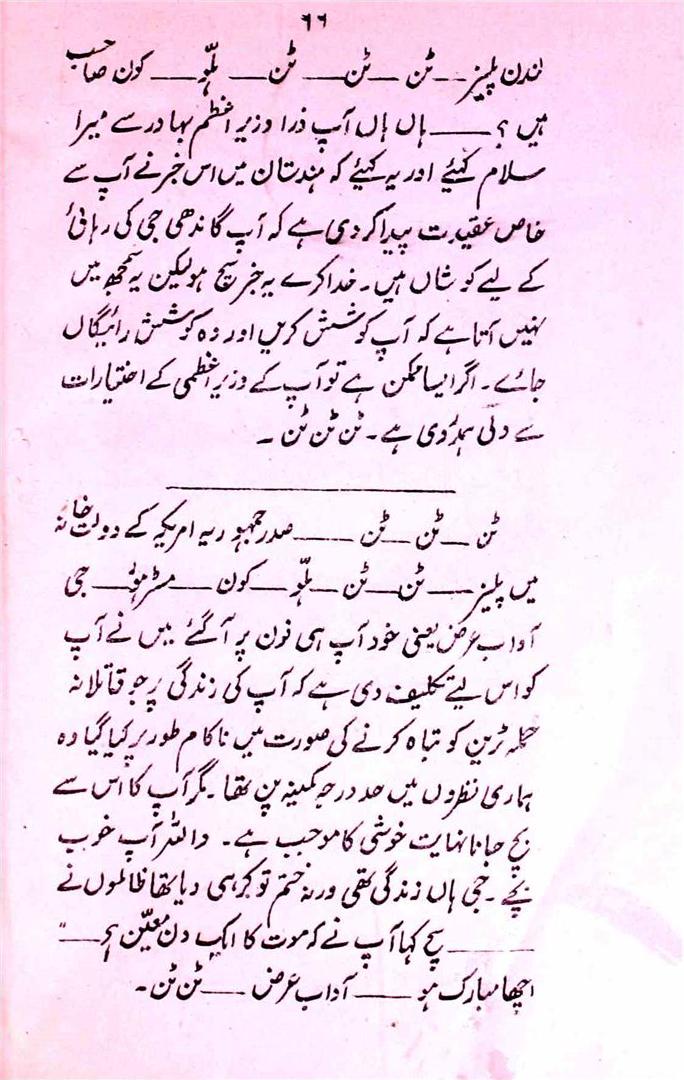 ۶۶
لندن پلیز — ٹن — ٹن — ٹن — ہلّو — کون صاحب
ہیں ؟ — ہاں ہاں آپ ذرا وزیر اعظم بہادر سے میرا
سلام کہیئے اور یہ کہیئے کہ ہندستان میں اس خبر نے آپ سے
خاص عقیدت پیدا کر دی ہے کہ آپ گاندھی جی کی رہائی
کے لیے کوشاں ہیں۔ خدا کرے یہ خبر سچ ہو لیکن یہ سمجھ میں
نہیں آتا ہے کہ آپ کوشش کریں اور وہ کوشش رائیگاں
جائے۔ اگر ایسا ممکن ہے تو آپ کے وزیر اعظمی کے اختیارات
سے دلی ہمدردی ہے۔ ٹن ٹن ٹن ۔
ٹن — ٹن — ٹن — صدر جمہوریہ امریکہ کے دولت خانہ
میں پلیز — ٹن — ٹن — ہلّو — کون — مسٹر ہُوور — جی
آداب عرض یعنی خود آپ ہی فون پر آگئے میں نے آپ
کو اس لیے تکلیف دی ہے کہ آپ کی زندگی پر جو قاتلانہ
حملہ ٹرین کو تباہ کرنے کی صورت میں ناکام طور پر کیا گیا وہ
ہماری نظروں میں حد درجہ کمینہ پن تھا۔ مگر آپ کا اس سے
بچ جانا نہایت خوشی کا موجب ہے۔ واللہ آپ خوب
بچے ۔ جی ہاں زندگی تھی ورنہ ختم تو کر ہی دیا تھا ظالموں نے
— سچ کہا آپ نے کہ موت کا ایک دن معیّن ہے — "
اچھا مبارک ہو — آداب عرض — ٹن ٹن ۔